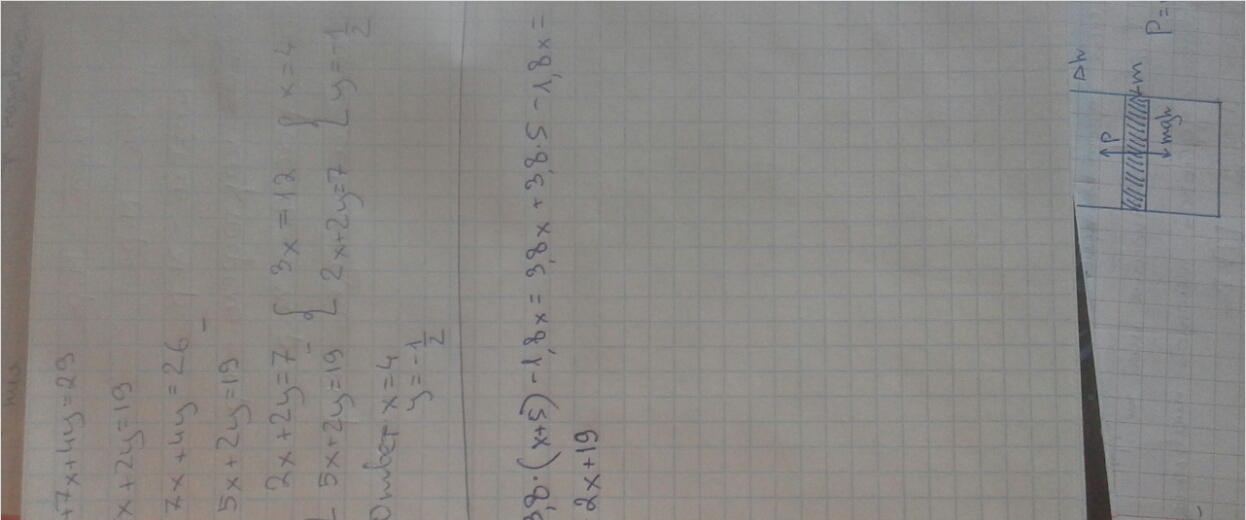 +7x+4y=29
x+2y=19
7x+4y=26
5x+2y=19
2x+2y=7 { 3x=12 { x=4
5x+2y=19 { 2x+2y=7 { y=-1/2
Ответ x=4
y=-1/2
3,8·(x+5)-1,8x=3,8x+3,8·5-1,8x=
2x+19
Δh
P
m
mgh
P=